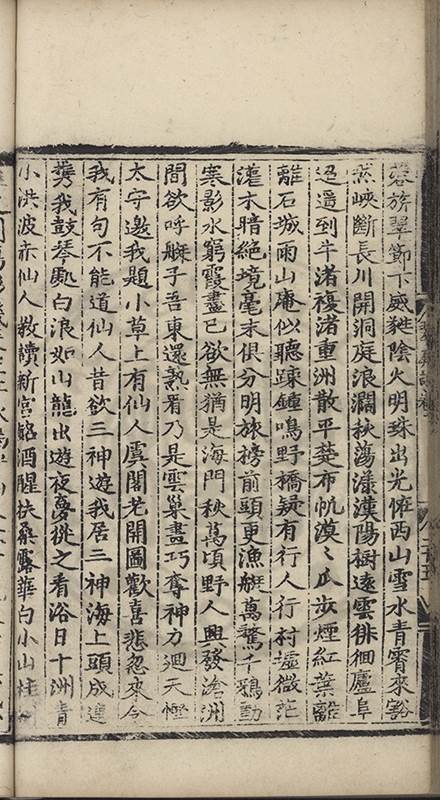 蓉旂翠節下威蕤陰火明珠出光恠西山雪水青霄來豁
然峽斷長川開洞庭浪濶秋蕩漾漢陽樹遠雲徘徊廬阜
迢遥到牛渚複渚重洲散平楚布帆漠〻瓜步煙紅葉離
離石城雨山庵似聽踈鍾鳴野橋疑有行人行村墟微茫
灌木暗絶境毫末俱分明旅榜前頭更漁艇萬騖千鴉動
寒影水窮霞盡已欲無猶是海門秋萬頃野人興發滄洲
間欲呼艇子吾東還熟看乃是雲巢畫巧奪神力迴天慳
太守邀我題小草上有仙人虞閣老開圖歡喜悲忽來今
我有句不能道仙人昔欲三神遊我居三神海上頭成連
携我鼓琴處白浪如山龍出遊夜夢從之看浴日十洲青
小洪波赤仙人教讀新宮銘酒醒扶桑露華白小山桂